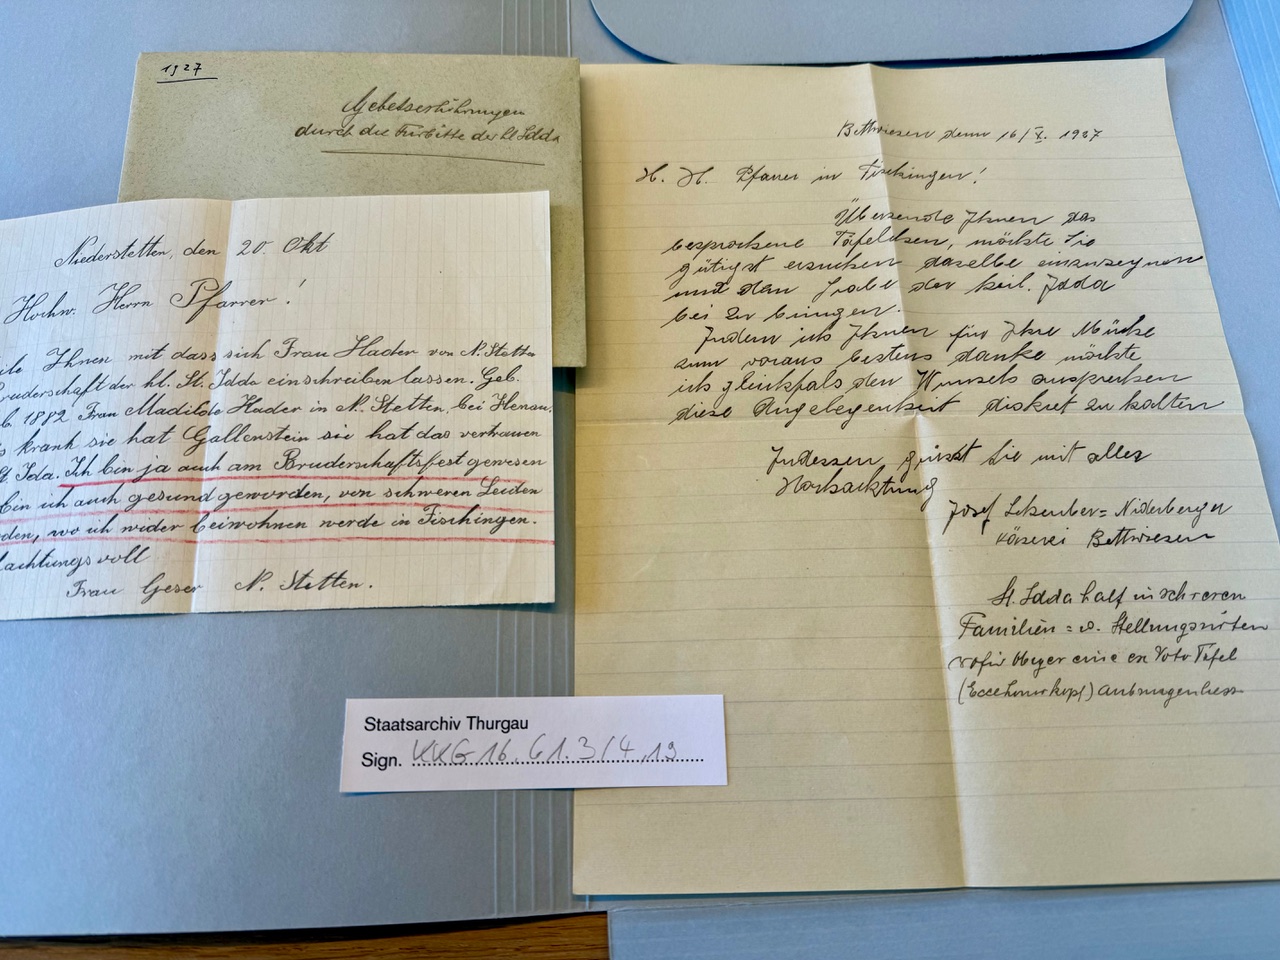 1927
Gebetserhörungen
durch die Fürbitte der hl. Idda
Niederstetten, den 20. Okt
Hochw. Herrn Pfarrer!
Ihnen mit dass sich Frau Hader von N. Stetten
der hl. St. Idda einschreiben lassen. Geb.
1882 Frau Madilde Hader in N. Stetten, bei Henau.
krank sie hat Gallenstein sie hat das vertrauen
St. Ida. Ich bin ja auch am Bruderschaftsfest gewesen
bin ich auch gesund geworden, von schweren Leiden
wo ich wider beiwohnen werde in Fischingen.
Frau Geser N. Stetten.
Bettwiesen denn 16/X. 1927
H. H. Pfarrer in Fischingen!
Übersende Ihnen das
besprochene Täfelchen, möchte Sie
gütigst ersuchen daselbe einzusegnen
und dem Grabe der heil. Idda
bei zu bringen.
Indem ich Ihnen für Ihre Mühe
zum voraus bestens danke möchte
ich gleichfals den Wunsch aussprechen
diese Angelegenheit diskret zu halten
Indessen grüsst Sie mit aller
Hochachtung
Josef = Niderberger
Käserei Bettwiesen
St. Idda half in schweren
Familien = u. Stellungsnöten
wofür eine ex Voto Tafel
(Eccehomokopf) anbringen liess
Staatsarchiv Thurgau
Sign. KKG 16, G1.3/4.19